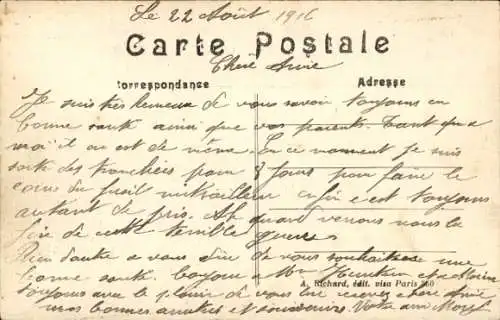 Le 22 Août 1916
Carte Postale
Chère Amie
Correspondance
Adresse
Je suis très heureux de vous savoir toujours en
bonne santé ainsi que vos parents. Tant qu'a
moi il en est de même. En ce moment je suis
sorti des tranchées pour 8 jours pour faire le
cour du fusil mitrailleur enfin c est toujours
autant de pris. Ah quand verrons nous la
fin de cette terrible guerre
Rien dautre a vous dire de vous souhaitasse une
bonne santé. Bonjour a Mr et
toujours avec le plaisir de vous lire recevez chère Amie
mes bonnes amitiés et souvenirs. Votre ami
A. Richard, édit. visa Paris 360